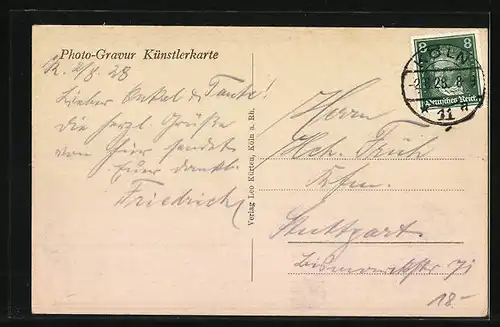 Photo-Gravur Künstlerkarte
K. 2/8. 28
Lieber Onkel & Tante!
Die herzl. Grüße
von hier sendet
Euer dankb.
Friedrich
Verlag Leo Kürten, Köln a. Rh.
8 8
Deutsches Reich
KÖLN
28. 8
11
Herrn
Hch. Früh
Kfm.
Stuttgart.
Bismarckstr 71
18.-